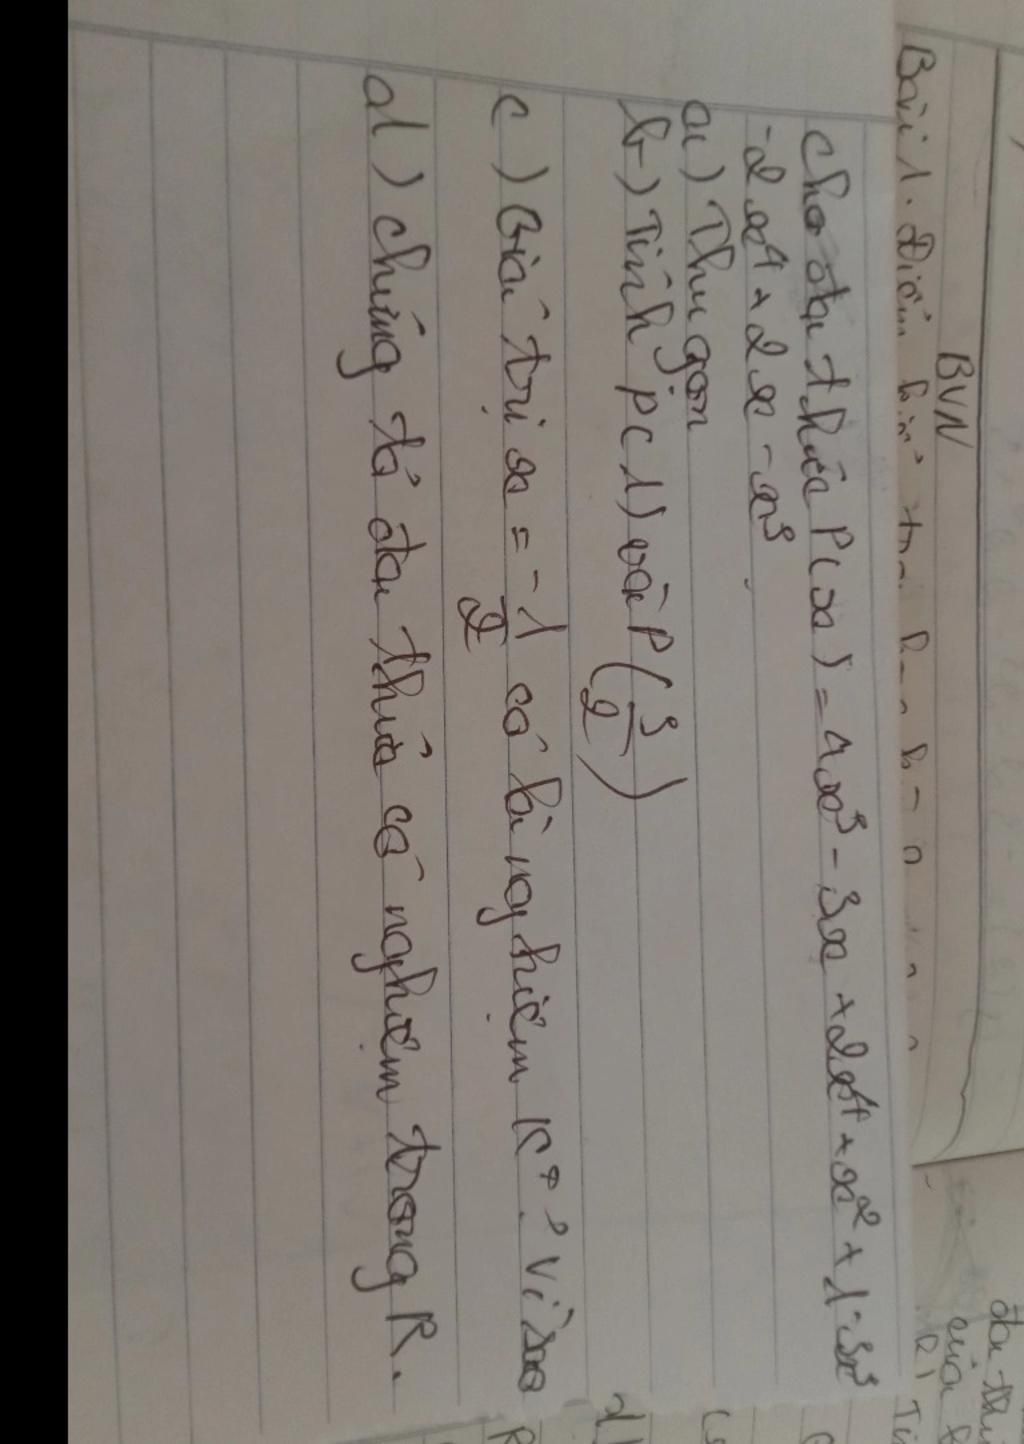 BVN
Bài 1. Điểm
cho đa thức P(x) = 4x³ - 3x + 2x⁴ + x² + 1 - 3x³
- 2x⁴ + 2x - x³
a) Thu gọn
b) Tính P(1) và P(3/2)
c) Giá trị x = -1/2 có là nghiệm K° ? Vì sao
d) chứng tỏ đa thức có nghiệm trong R.